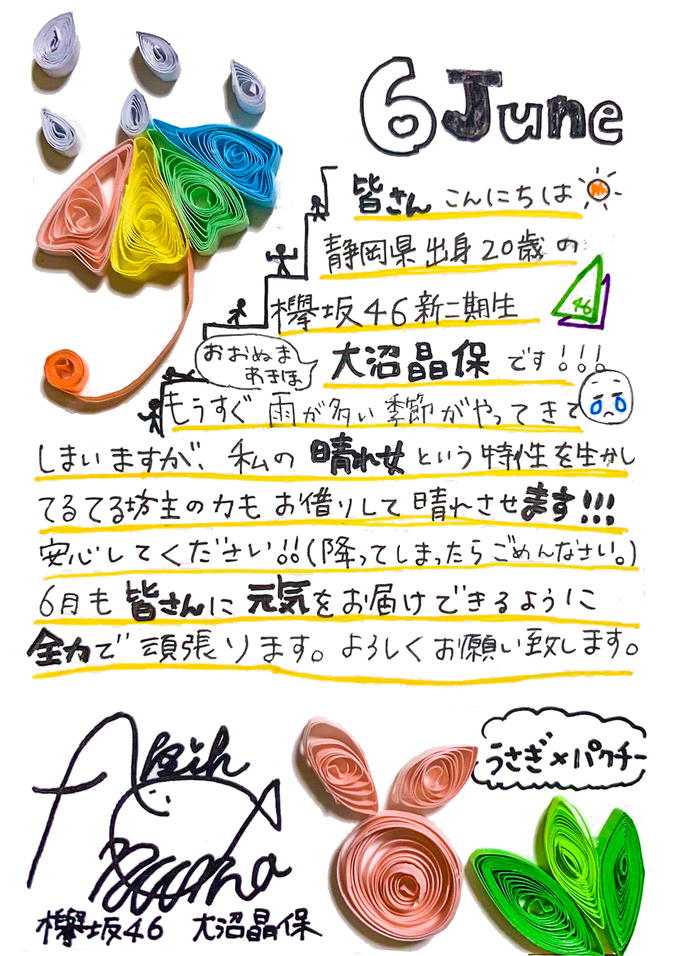 6 June
皆さん こんにちは
静岡県出身20歳の
欅坂46新二期生
おおぬま
あきほ
大沼晶保 です!!!
46
もうすぐ 雨が多い季節がやってきて
しまいますが、私の 晴れ女 という特性を生かし
てるてる坊主の力もお借りして晴れさせます!!!
安心してください!!(降ってしまったらごめんなさい。)
6月も 皆さんに 元気をお届けできるように
全力で 頑張ります。よろしくお願い致します。
うさぎ×パクチー
欅坂46 大沼晶保